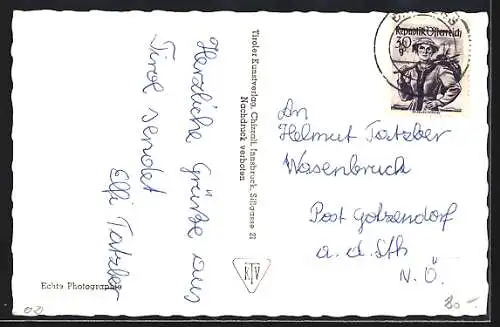 Herzliche Grüße aus
Tirol sendet
Elfi Tatzber
Echte Photographie
Tiroler Kunstverlag, Chizzali, Innsbruck, Sillgasse 21
Nachdruck verboten
KTV
Republik Österreich
30
An
Helmut Tatzber
Wasenbruck
Post Götzendorf
a. d. Lth
N. Ö.
80 -